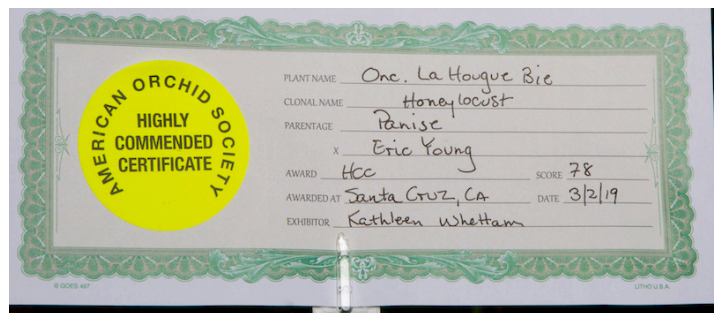 AMERICAN ORCHID SOCIETY
HIGHLY
COMMENDED
CERTIFICATE
PLANT NAME Onc. La Hougue Bie
CLONAL NAME Honeylocust
PARENTAGE Panise
X Eric Young
AWARD HCC SCORE 78
AWARDED AT Santa Cruz, CA DATE 3/2/19
EXHIBITOR Kathleen Whettam
© GOES 497 LITHO U.S.A.